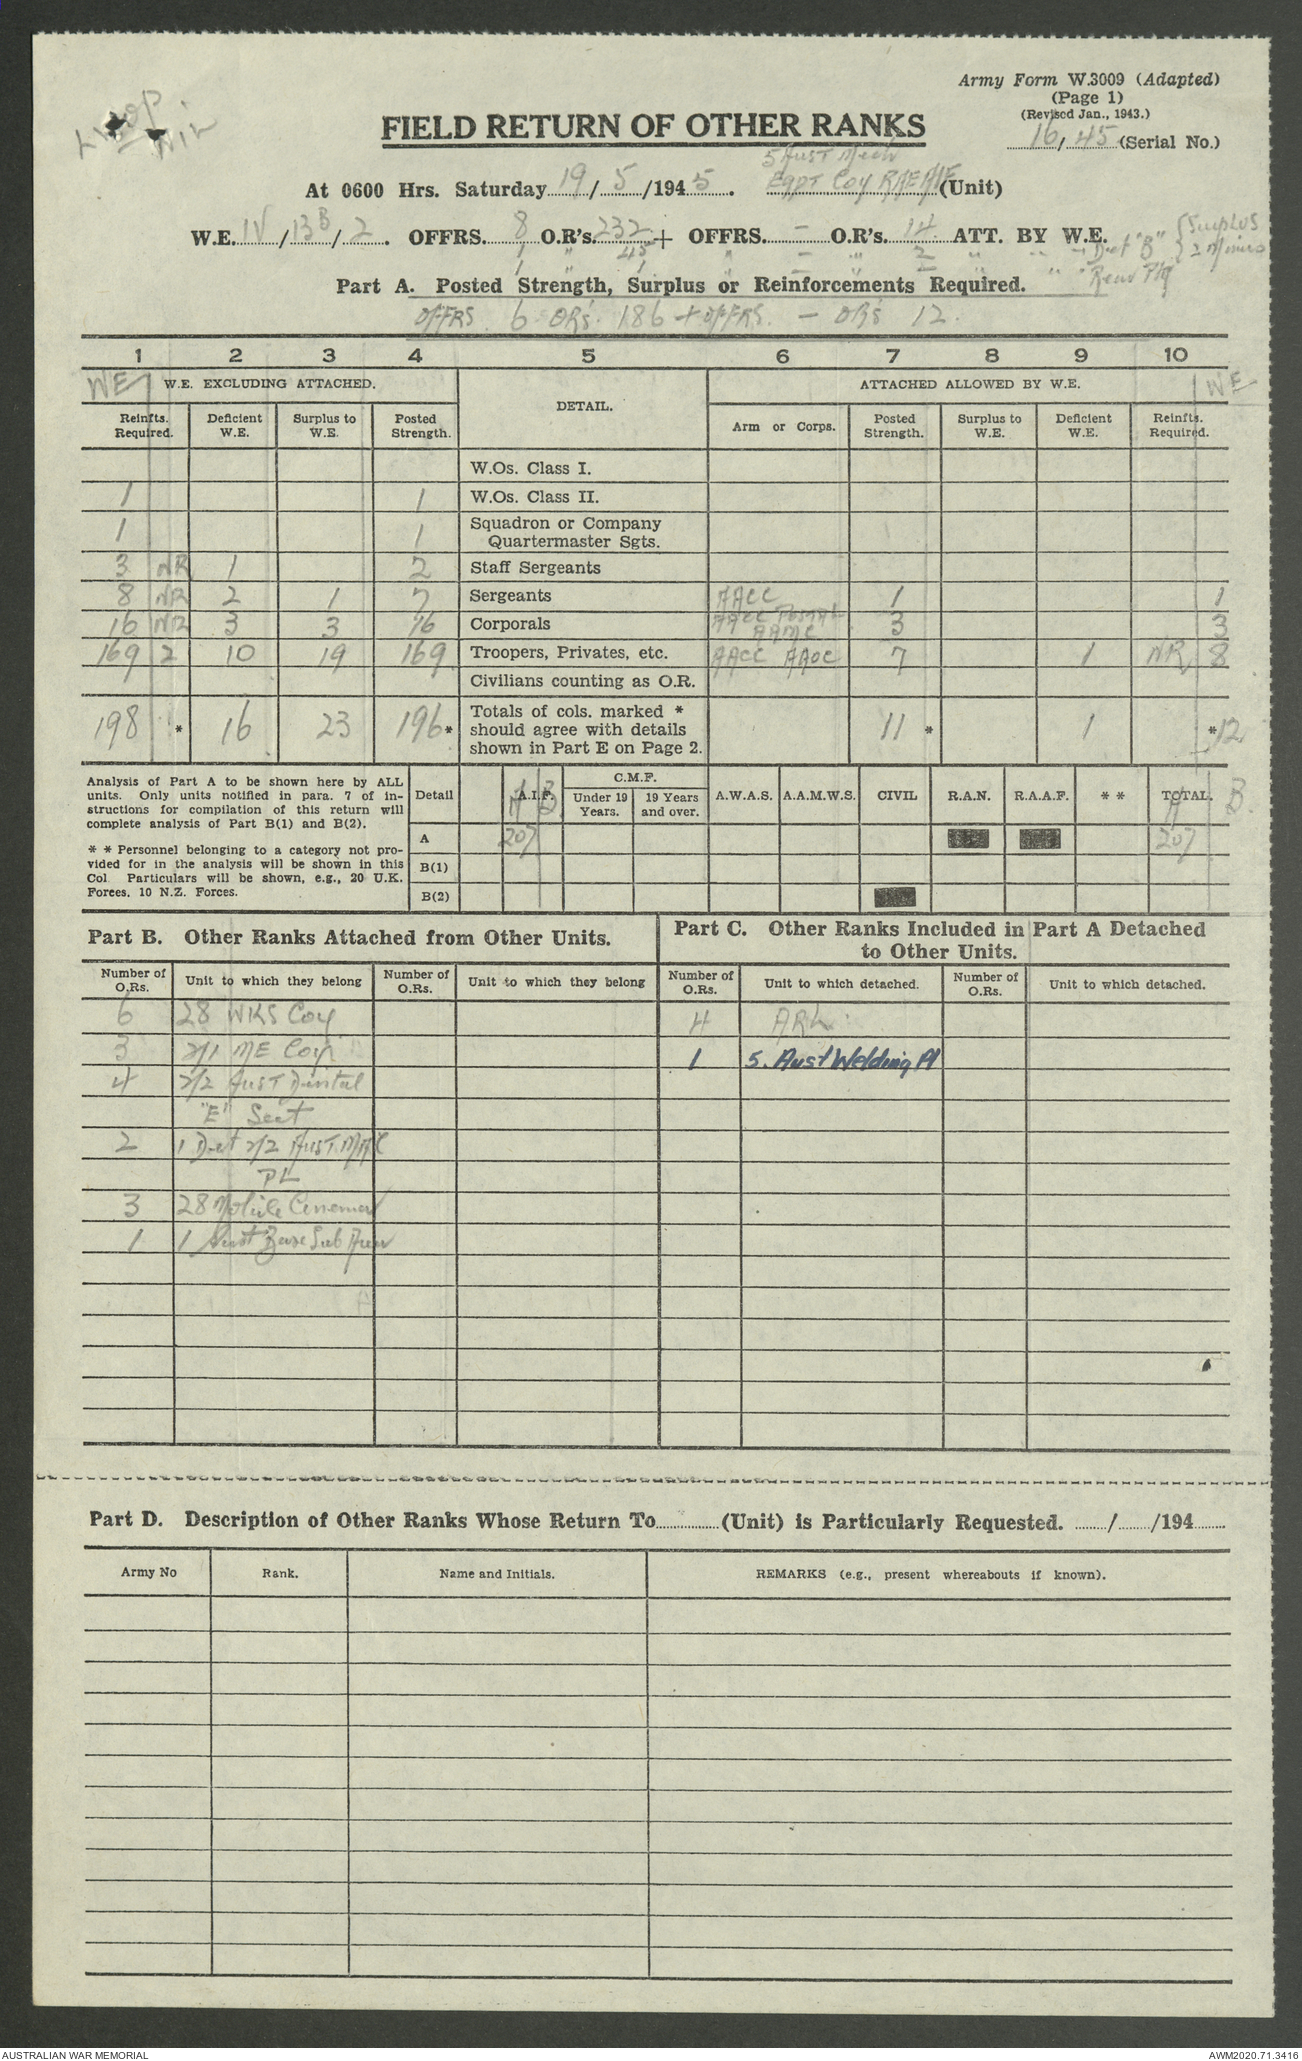 Army Form W.3009 (Adapted)
(Page 1)
(Revised Jan., 1943.)
16/45 (Serial No.)
LHQOP
NIL
FIELD RETURN OF OTHER RANKS
5 Aust Mech
At 0600 Hrs. Saturday 19/5/1945. Eqpt Coy RAE AIF (Unit)
W.E. IV/13B/2. OFFRS. 8 O.R's. 232 + OFFRS. - O.R's. 14 ATT. BY W.E.
1 " 45 - " 2 " " - Det "B" } Surplus
1 " 1 - " - " " " Rear Ptq
Part A. Posted Strength, Surplus or Reinforcements Required.
OFFRS 6 ORs 186 + OFFRS. - ORs 12.
1 2 3 4 5 6 7 8 9 10
WE W.E. EXCLUDING ATTACHED. DETAIL. ATTACHED ALLOWED BY W.E. WE
Reinfts. Required. Deficient W.E. Surplus to W.E. Posted Strength. Arm or Corps. Posted Strength. Surplus to W.E. Deficient W.E. Reinfts. Required.
W.Os. Class I.
1 1 W.Os. Class II.
1 1 Squadron or Company Quartermaster Sgts.
3 NR 1 2 Staff Sergeants
8 NR 2 1 7 Sergeants AACC 1 1
16 NR 3 3 16 Corporals AACC Postal AAMC 3 3
169 2 10 19 169 Troopers, Privates, etc. AACC AAOC 7 1 NR 8
Civilians counting as O.R.
198 * 16 23 196* Totals of cols. marked * should agree with details shown in Part E on Page 2. 11 * 1 *12
Analysis of Part A to be shown here by ALL
units. Only units notified in para. 7 of in-
structions for compilation of this return will
complete analysis of Part B(1) and B(2).
* * Personnel belonging to a category not pro-
vided for in the analysis will be shown in this
Col Particulars will be shown, e.g., 20 U.K.
Forces. 10 N.Z. Forces.
Detail A.I.F. A B C.M.F. Under 19 Years. 19 Years and over. A.W.A.S. A.A.M.W.S. CIVIL R.A.N. R.A.A.F. * * TOTAL. A B.
A 207 207
B(1)
B(2)
Part B. Other Ranks Attached from Other Units.
Part C. Other Ranks Included in Part A Detached
to Other Units.
Number of O.Rs. Unit to which they belong Number of O.Rs. Unit to which they belong Number of O.Rs. Unit to which detached. Number of O.Rs. Unit to which detached.
6 28 WKS Coy 4 ARL
3 2/1 ME Coy 1 5. Aust Welding Pl
4 2/2 Aust Dental
"E" Sect
2 1 Det 2/2 Aust. MAC
PL
3 28 Mobile Cinema
1 1 Aust Base Sub Area
Part D. Description of Other Ranks Whose Return To............(Unit) is Particularly Requested. ......./......./194.......
Army No Rank. Name and Initials. REMARKS (e.g., present whereabouts if known).
AUSTRALIAN WAR MEMORIAL
AWM2020.71.3416